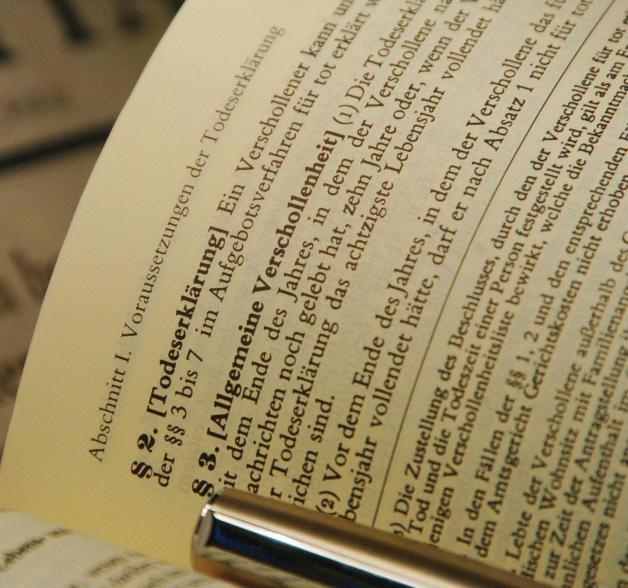 Abschnitt I. Voraussetzungen der Todeserklärung
§ 2. [Todeserklärung] Ein Verschollener kann un
der §§ 3 bis 7 im Aufgebotsverfahren für tot erklärt w
§ 3. [Allgemeine Verschollenheit] (1) Die Todeserkl
it dem Ende des Jahres, in dem der Verschollene na
achrichten noch gelebt hat, zehn Jahre oder, wenn der V
r Todeserklärung das achtzigste Lebensjahr vollendet hä
ichen sind.
(2) Vor dem Ende des Jahres, in dem der Verschollene das f
bensjahr vollendet hätte, darf er nach Absatz 1 nicht für tot
) Die Zustellung des Beschlusses, durch den der Verschollene für tot
Tod und die Todeszeit einer Person festgestellt wird, gilt als am
enigen Verschollenheitsliste bewirkt, welche die Bekanntmach
In den Fällen der §§ 1, 2 und den entsprechenden
dem Amtsgericht Gerichtskosten nicht erhoben
Lebte der Verschollene außerhalb des
ischen Wohnsitz mit Familienan
zur Zeit der Antragstellung
nlichen Aufenthalt in
ssetzes nicht